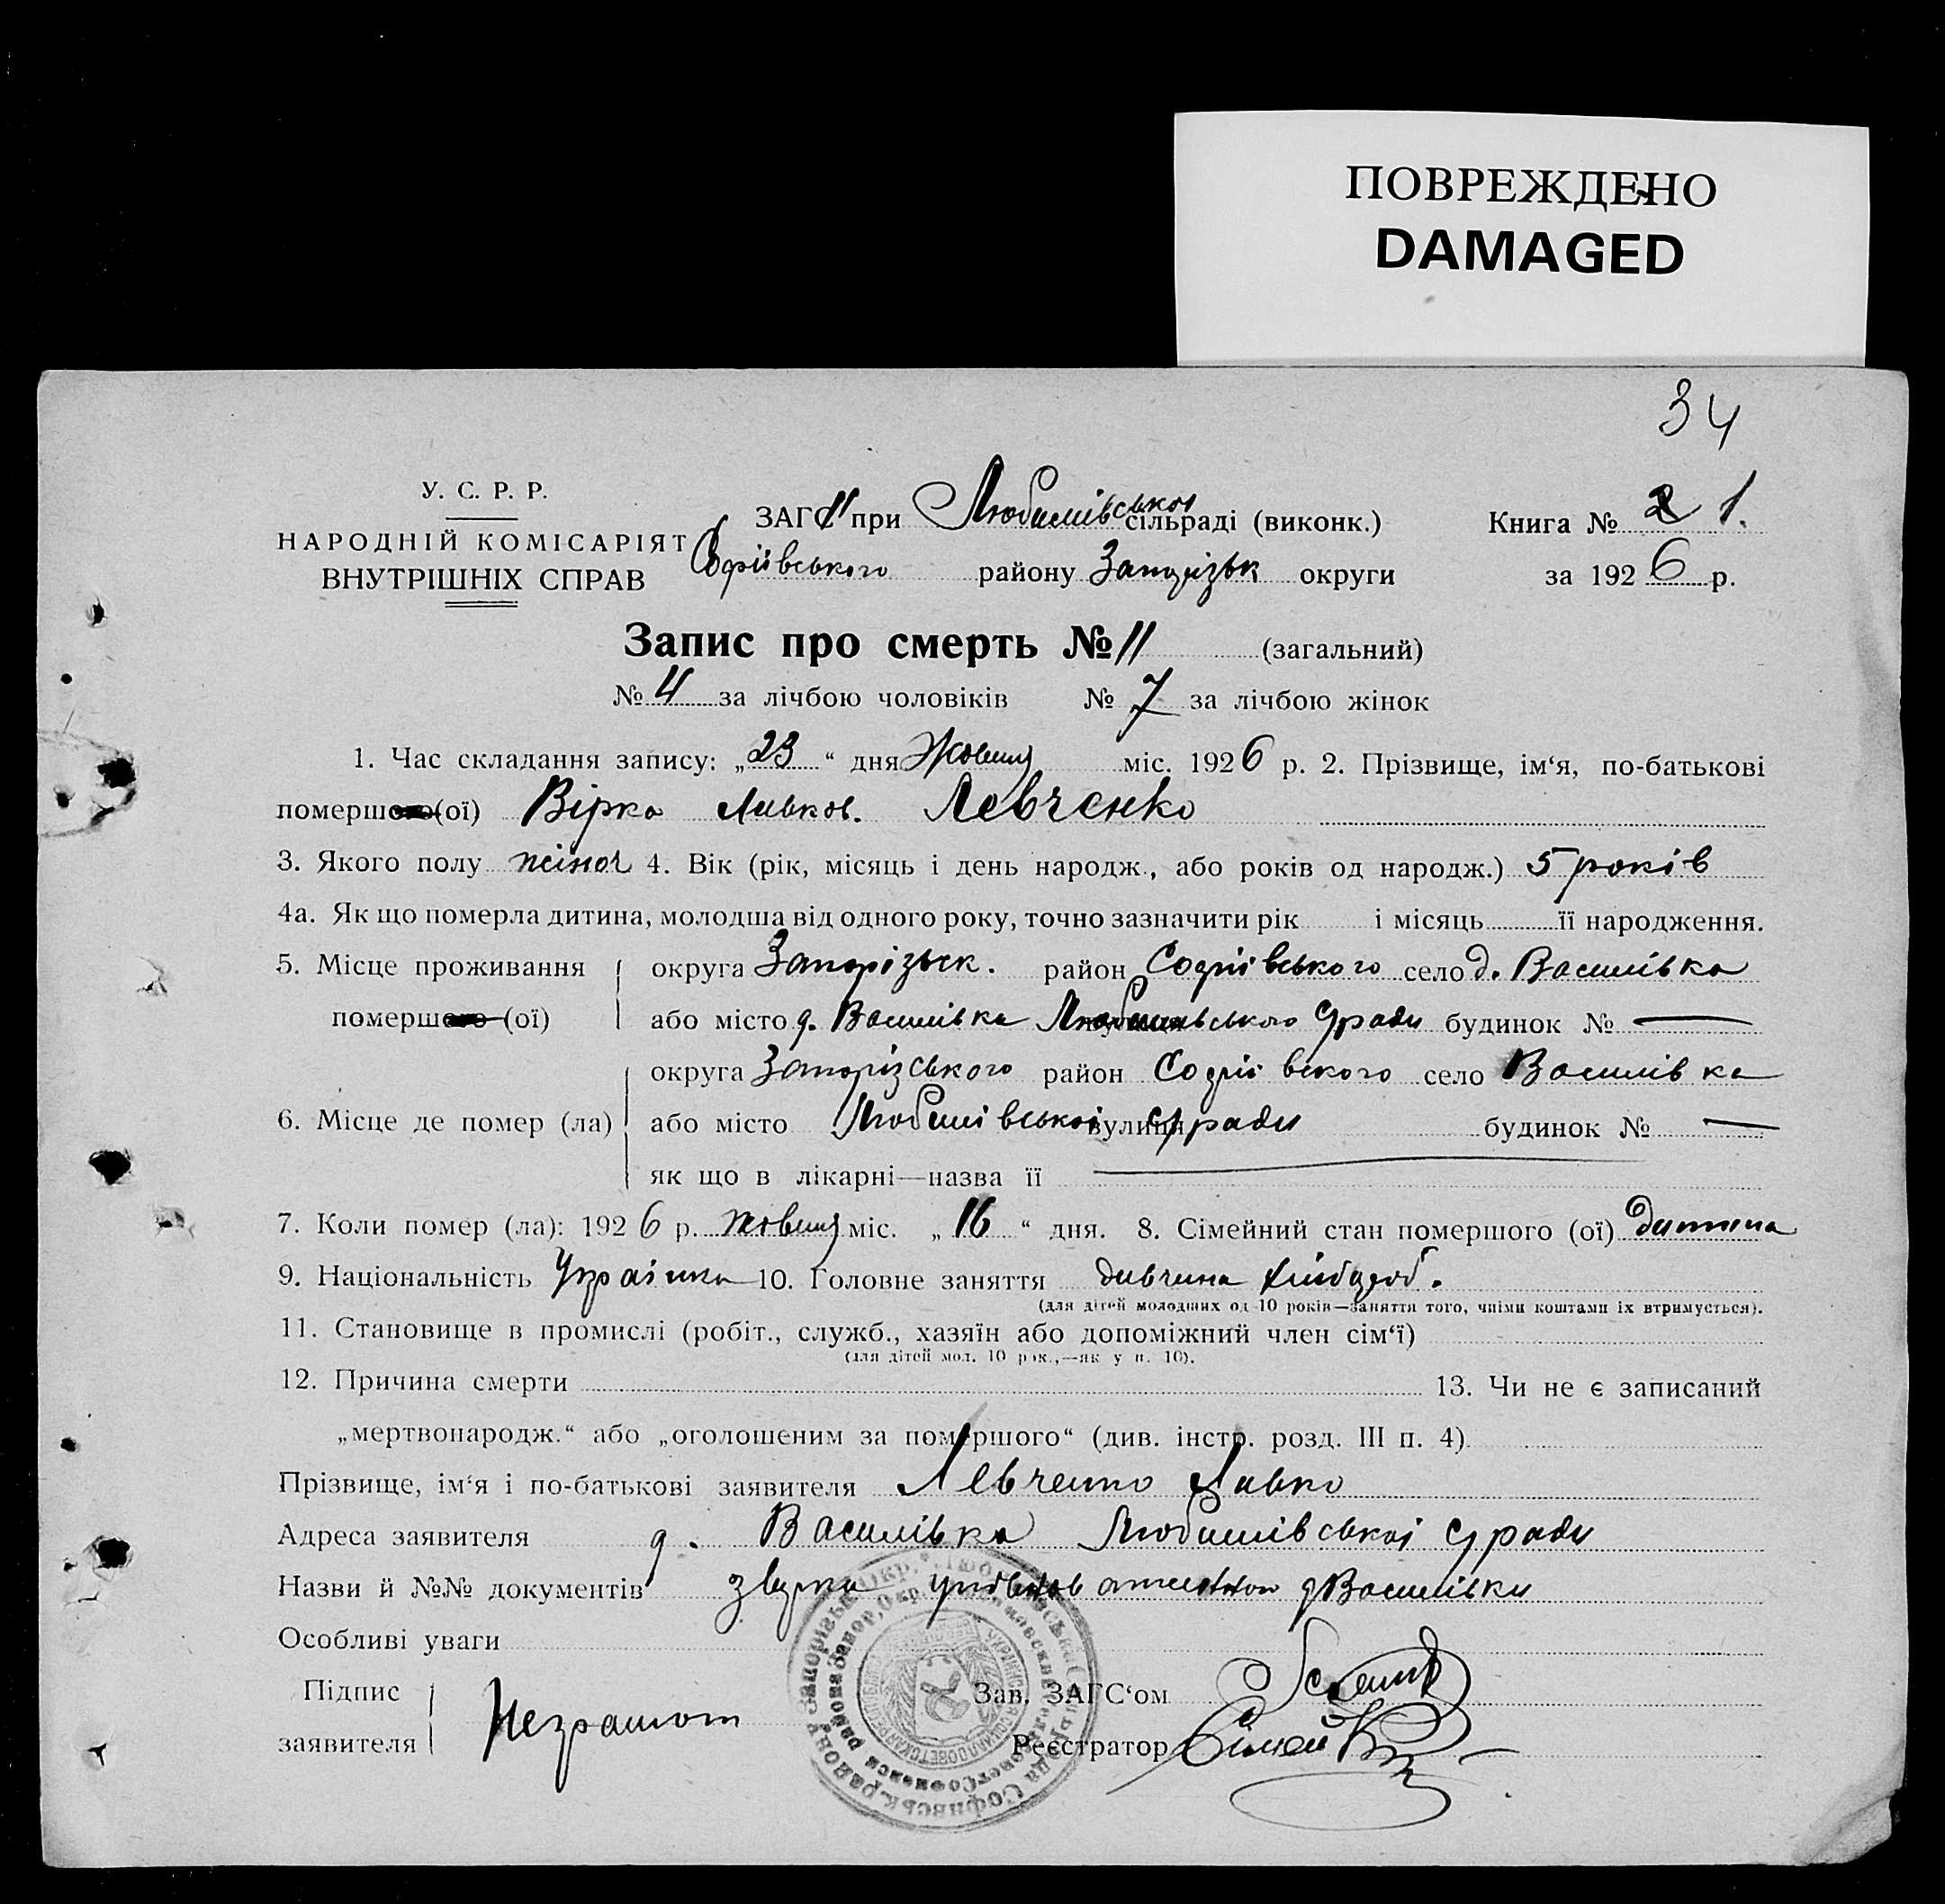 ПОВРЕЖДЕНО
DAMAGED
34
У. С. Р. Р.
НАРОДНІЙ КОМІСАРІЯТ
ВНУТРІШНІХ СПРАВ
ЗАГС при Любимівської сільраді (виконк.) Книга № 2 1.
Софіївського району Запорізьк округи за 1926 р.
Запис про смерть № 11 (загальний)
№ 4 за лічбою чоловіків № 7 за лічбою жінок
1. Час складання запису: „23“ дня Жовтня міс. 1926 р. 2. Прізвище, ім‘я, по-батькові
помершого (ої) Вірка Левков. Левченко
3. Якого полу жіноч 4. Вік (рік, місяць і день народж., або років од народж.) 5 років
4а. Як що померла дитина, молодша від одного року, точно зазначити рік і місяць її народження.
5. Місце проживання округа Запорізьк. район Софіївського село д. Василівка
помершого (ої) або місто д. Василівка Любимівського С/ради будинок № —
округа Запорізського район Софіівского село Василівка
6. Місце де помер (ла) або місто Любимівської вулиця С/ради будинок № —
як що в лікарні—назва її
7. Коли помер (ла): 1926 р. жовтня міс. „16“ дня. 8. Сімейний стан помершого (ої) дитина
9. Національність Украінка 10. Головне заняття дивчина хлібороб.
(для дітей молодших од 10 років—заняття того, чиїми коштами їх втримується).
11. Становище в промислі (робіт., служб., хазяїн або допоміжний член сім‘ї)
(для дітей мол. 10 рок.,—як у п. 10).
12. Причина смерти 13. Чи не є записаний
„мертвонародж.“ або „оголошеним за помершого“ (див. інстр. розд. III п. 4)
Прізвище, ім‘я і по-батькові заявителя Левченко Левко
Адреса заявителя д. Василівка Любимівської С/ради
Назви й №№ документів д Василівки
Особливі уваги
Підпис заявителя Неграмот
Зав. ЗАГС‘ом
Реєстратор